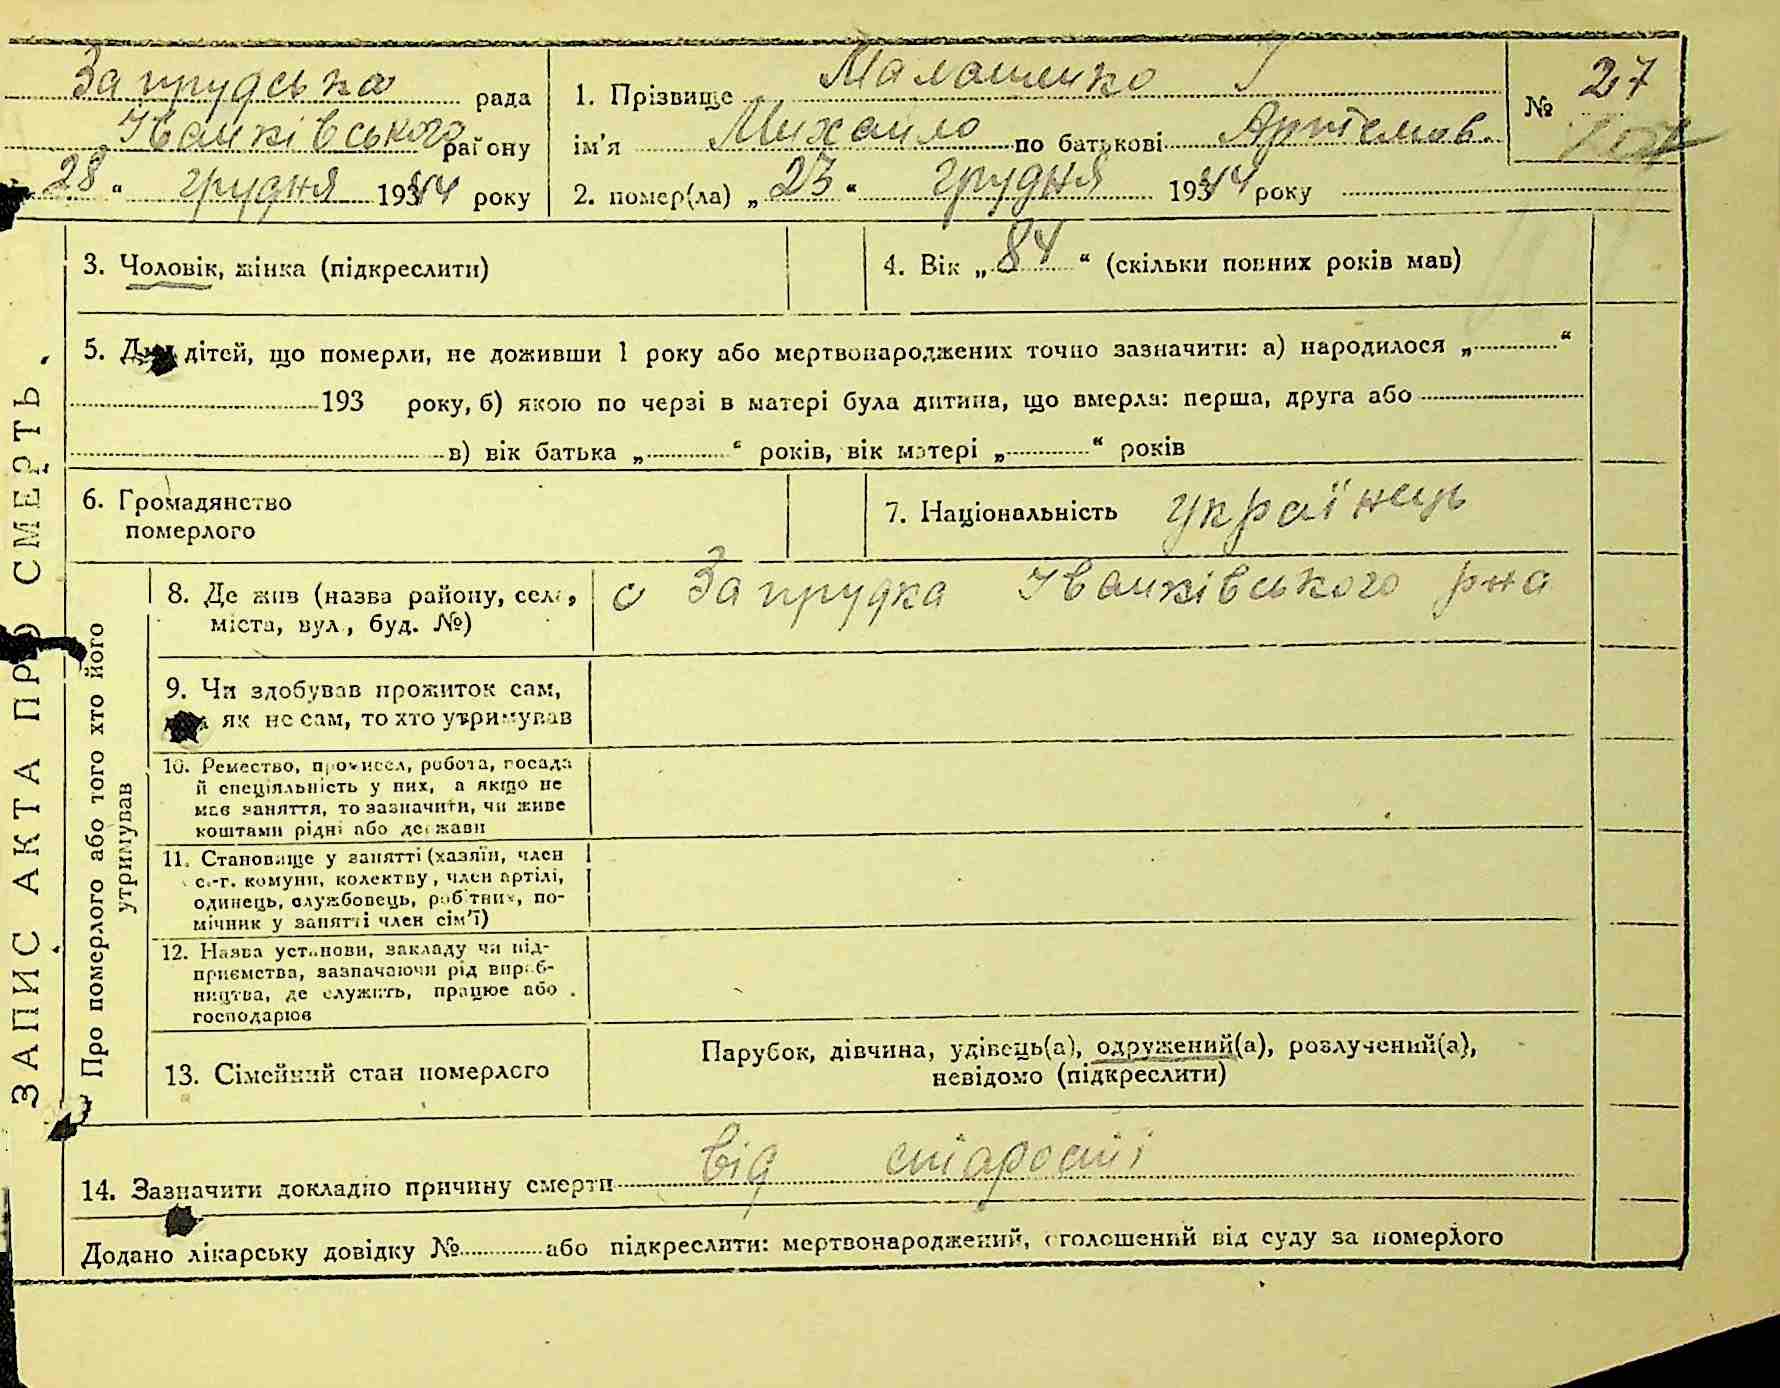 Запрудська рада
Іванківського району
28 " грудня 1944 року
1. Прізвище Малашенко
ім'я Михайло по батькові Артемов.
2. помер(ла) „ 23 " грудня 1944 року
№ 27
3. Чоловік, жінка (підкреслити)
4. Вік „ 84 " (скільки повних років мав)
5. Для дітей, що померли, не доживши 1 року або мертвонароджених точно зазначити: а) народилося „ "
193 року, б) якою по черзі в матері була дитина, що вмерла: перша, друга або
в) вік батька „ " років, вік матері „ " років
6. Громадянство
померлого
7. Національність українець
ЗАПИС АКТА ПРО СМЕРТЬ.
Про померлого або того хто його
утримував
8. Де жив (назва району, села,
міста, вул., буд. №)
с Запрудка Іванківського рна
9. Чи здобував прожиток сам,
як не сам, то хто утримував
10. Ремество, промисел, робота, посада
й спеціяльність у них, а якщо не
мав заняття, то зазначити, чи живе
коштами рідні або держави
11. Становище у занятті (хазяїн, член
с.-г. комуни, колективу, член артілі,
одинець, службовець, робітник, по-
мічник у занятті член сім'ї)
12. Назва установи, закладу чи під-
приємства, зазначаючи рід вироб-
ництва, де служить, працює або
господарює
13. Сімейний стан померлого
Парубок, дівчина, удівець(а), одружений(а), розлучений(а),
невідомо (підкреслити)
14. Зазначити докладно причину смерти від старості
Додано лікарську довідку № або підкреслити: мертвонароджений, оголошений від суду за померлого